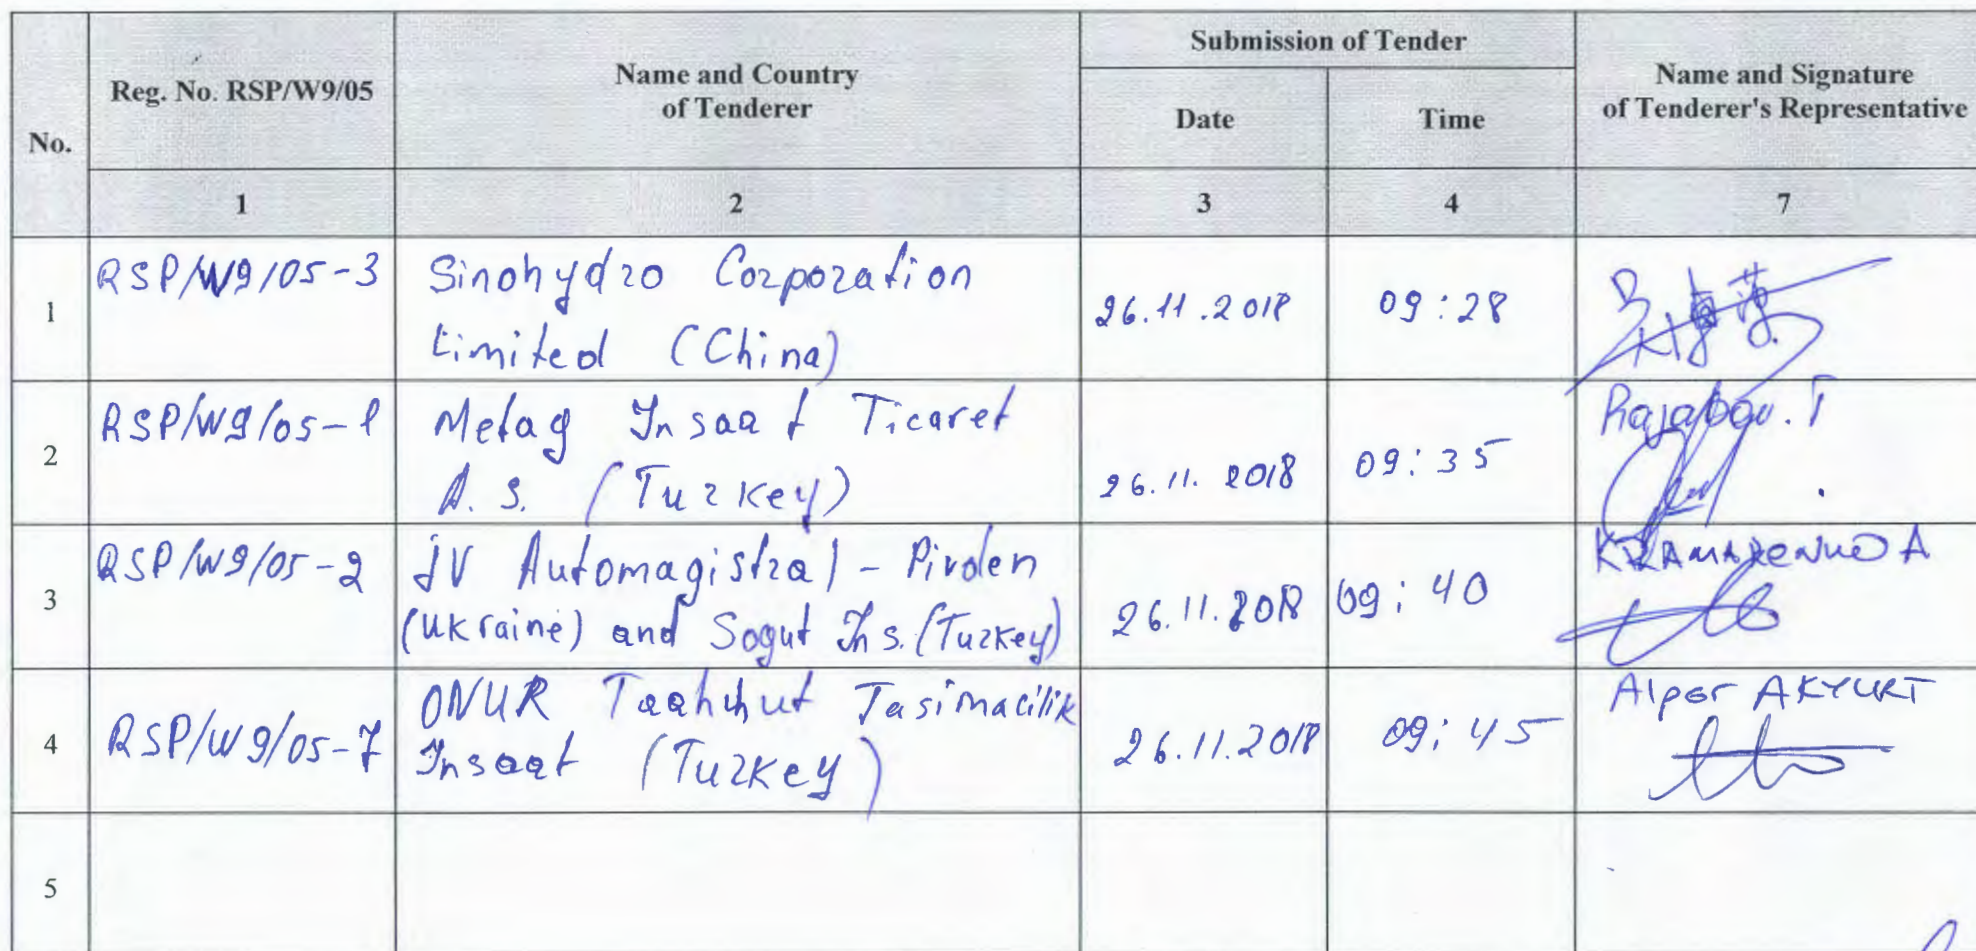 No.
Reg. No. RSP/W9/05
Name and Country
of Tenderer
Submission of Tender
Date
Time
Name and Signature
of Tenderer's Representative
1
2
3
4
7
1
RSP/W9/05-3
Sinohydro Corporation
Limited (China)
26.11.2018
09:28
2
RSP/W9/05-1
Metag Insaat Ticaret
A.S. (Turkey)
26.11.2018
09:35
Rajabov. T
3
RSP/W9/05-2
JV Automagistral - Pivden
(Ukraine) and Sogut Ins. (Turkey)
26.11.2018
09:40
KRAMARENKO A
4
RSP/W9/05-7
ONUR Taahhut Tasimacilik
Insaat (Turkey)
26.11.2018
09:45
Alper AKYURT
5